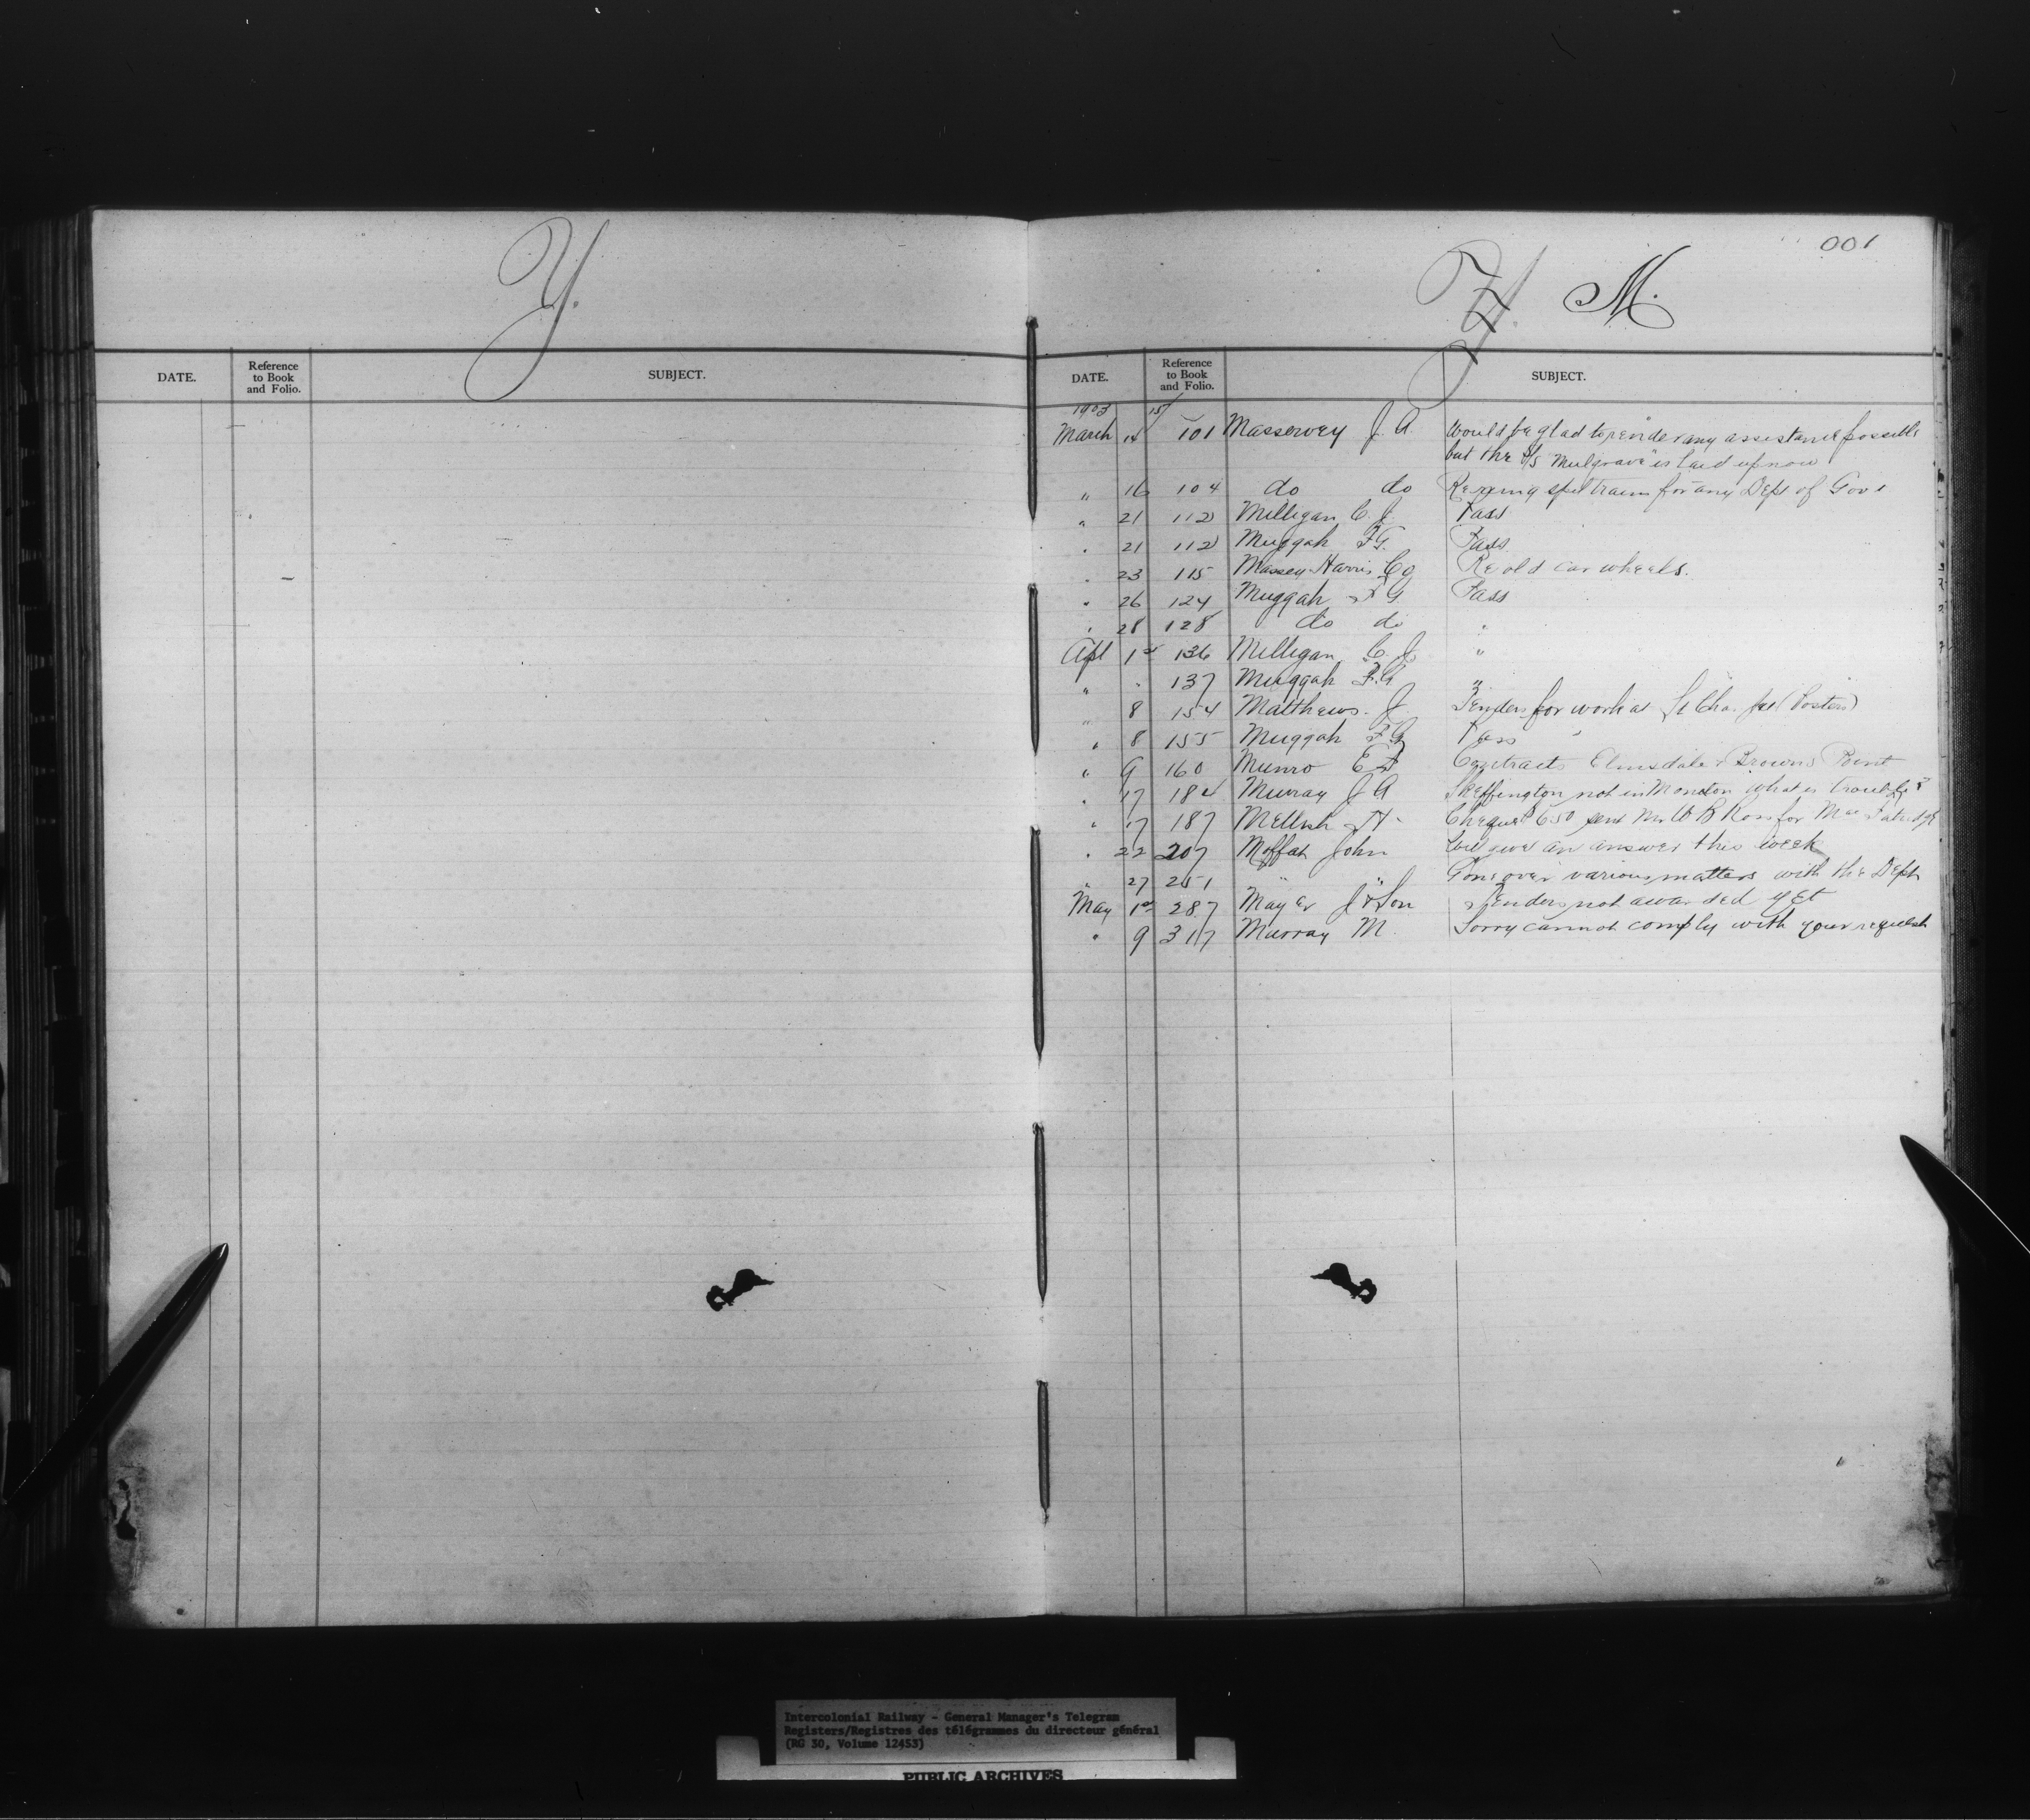 Y.
DATE.
Reference
to Book
and Folio.
SUBJECT.
001
Y. M.
DATE.
Reference
to Book
and Folio.
SUBJECT.
1903 15
March 14 101 Masservey J. A. Would be glad to render any assistance possible
but the S/S "Mulgrave" is laid up now
" 16 104 do do Re spel train for any Dept of Govt
" 21 112 Milligan C. J. Pass
" 21 112 Muggah F G. Pass
" 23 115 Massey Harris Co Re old car wheels.
" 26 124 Muggah F G Pass
" 28 128 do do "
Apl 1st 136 Milligan C. J. "
" " 137 Muggah F. G "
" 8 154 Matthews. J. Tenders for work at St Cha. Jct
" 8 155 Muggah F G Pass
" 9 160 Munro E Contracts Elmsdale & Browns Point
" 17 184 Murray J A Skeffington not in Moncton what is trouble?
" 17 187 Mellish H Cheque 650 sent Mr W B Ross for
" 22 207 Moffat John Will give an answer this week
" 27 251 " " Gone over various matters with the Dept
May 1st 287 Mayer J & Son Tenders not awarded yet
" 9 317 Murray M. Sorry cannot comply with your request
Intercolonial Railway - General Manager's Telegram
Registers/Registres des télégrammes du directeur général
(RG 30, Volume 12453)
PUBLIC ARCHIVES